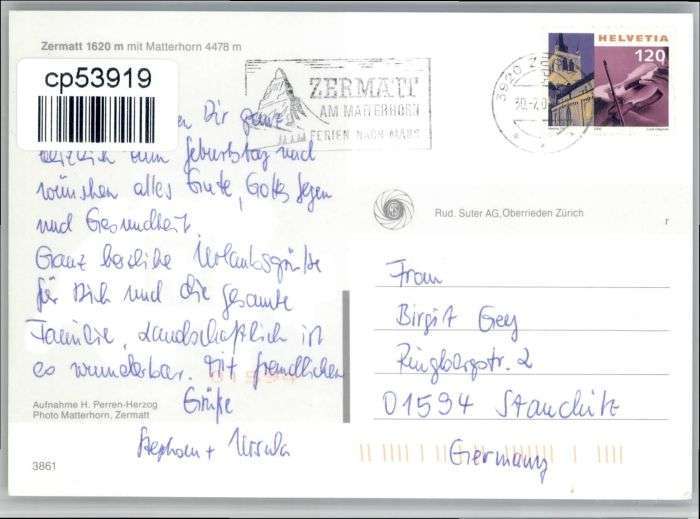 Zermatt 1620 m mit Matterhorn 4478 m
cp53919
ZERMATT
AM MATTERHORN
FERIEN NACH MASS
3920 Z
30.-7.0
HELVETIA
120
Dir ganz
herzlich zum Geburtstag und
wünschen alles Gute, Gottes Segen
und Gesundheit.
Ganz herzliche Urlaubsgrüße
für Dich und die gesamte
Familie, Landschaftlich ist
es wunderbar. Mit freundlichen
Grüße
Stephan + Ursula
Rud. Suter AG, Oberrieden Zürich
r
Frau
Birgit Gey
Ringbergstr. 2
01594 Stauchitz
Germany
01594
Aufnahme H. Perren-Herzog
Photo Matterhorn, Zermatt
3861